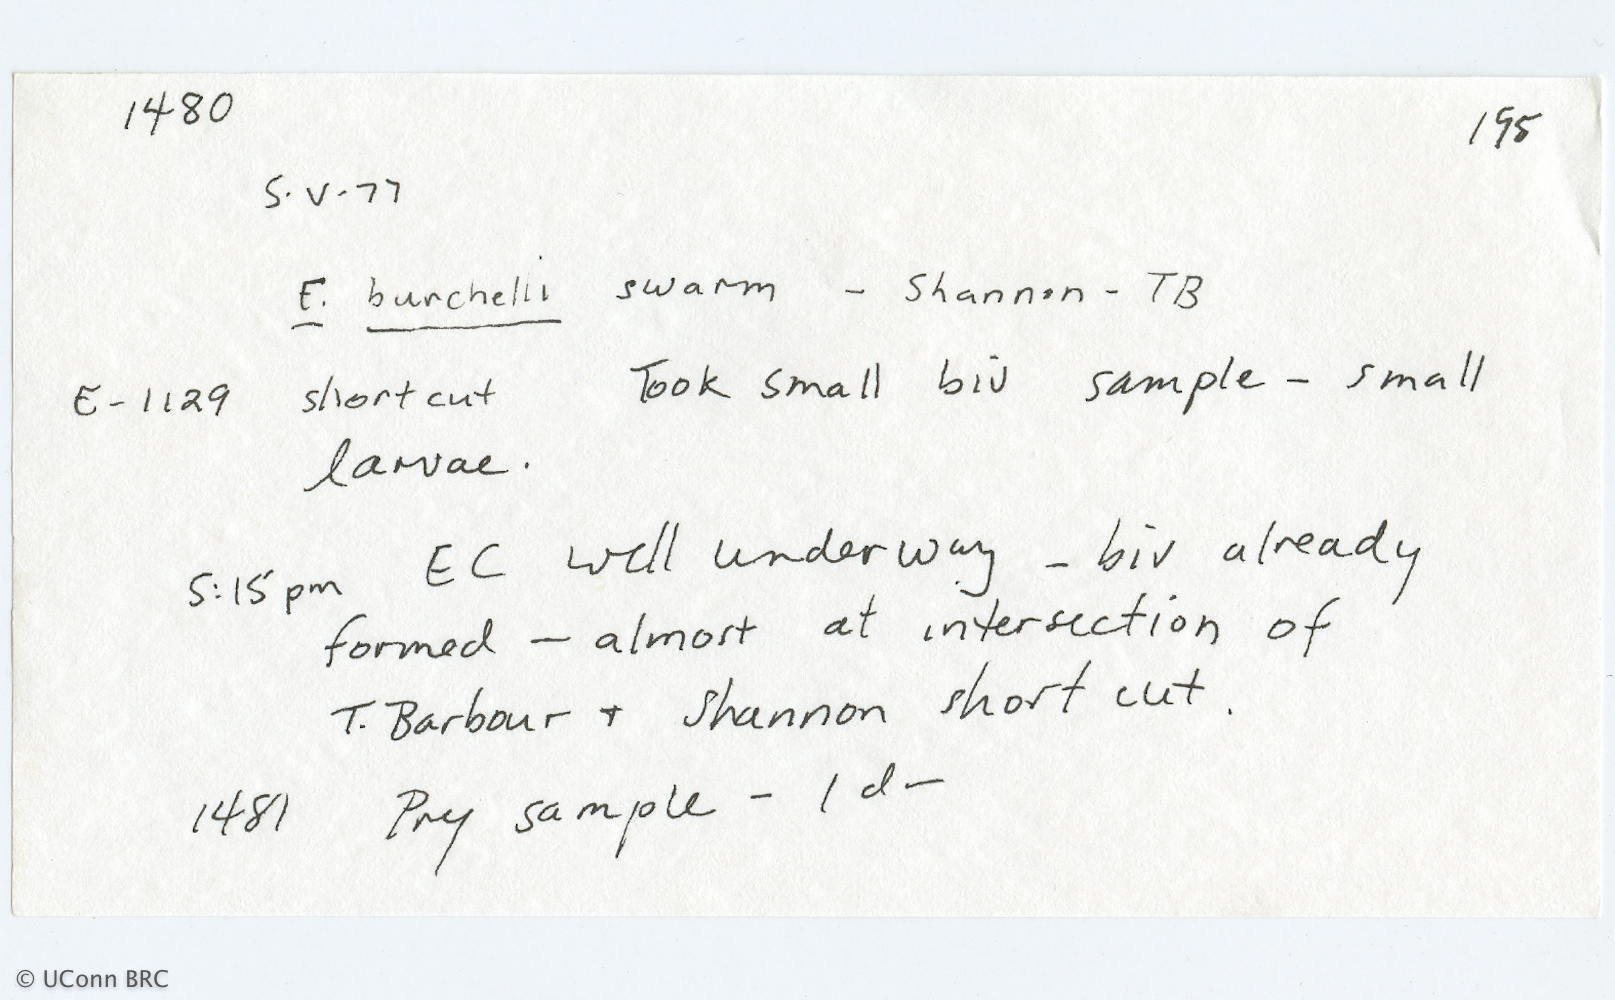 1480 195
5.V.77
E. burchelli swarm - Shannon - TB
E-1129 shortcut Took small biv sample - small
larvae.
5:15 pm EC well underway - biv already
formed - almost at intersection of
T. Barbour + Shannon short cut.
1481 Prey sample - 1 d -
© UConn BRC